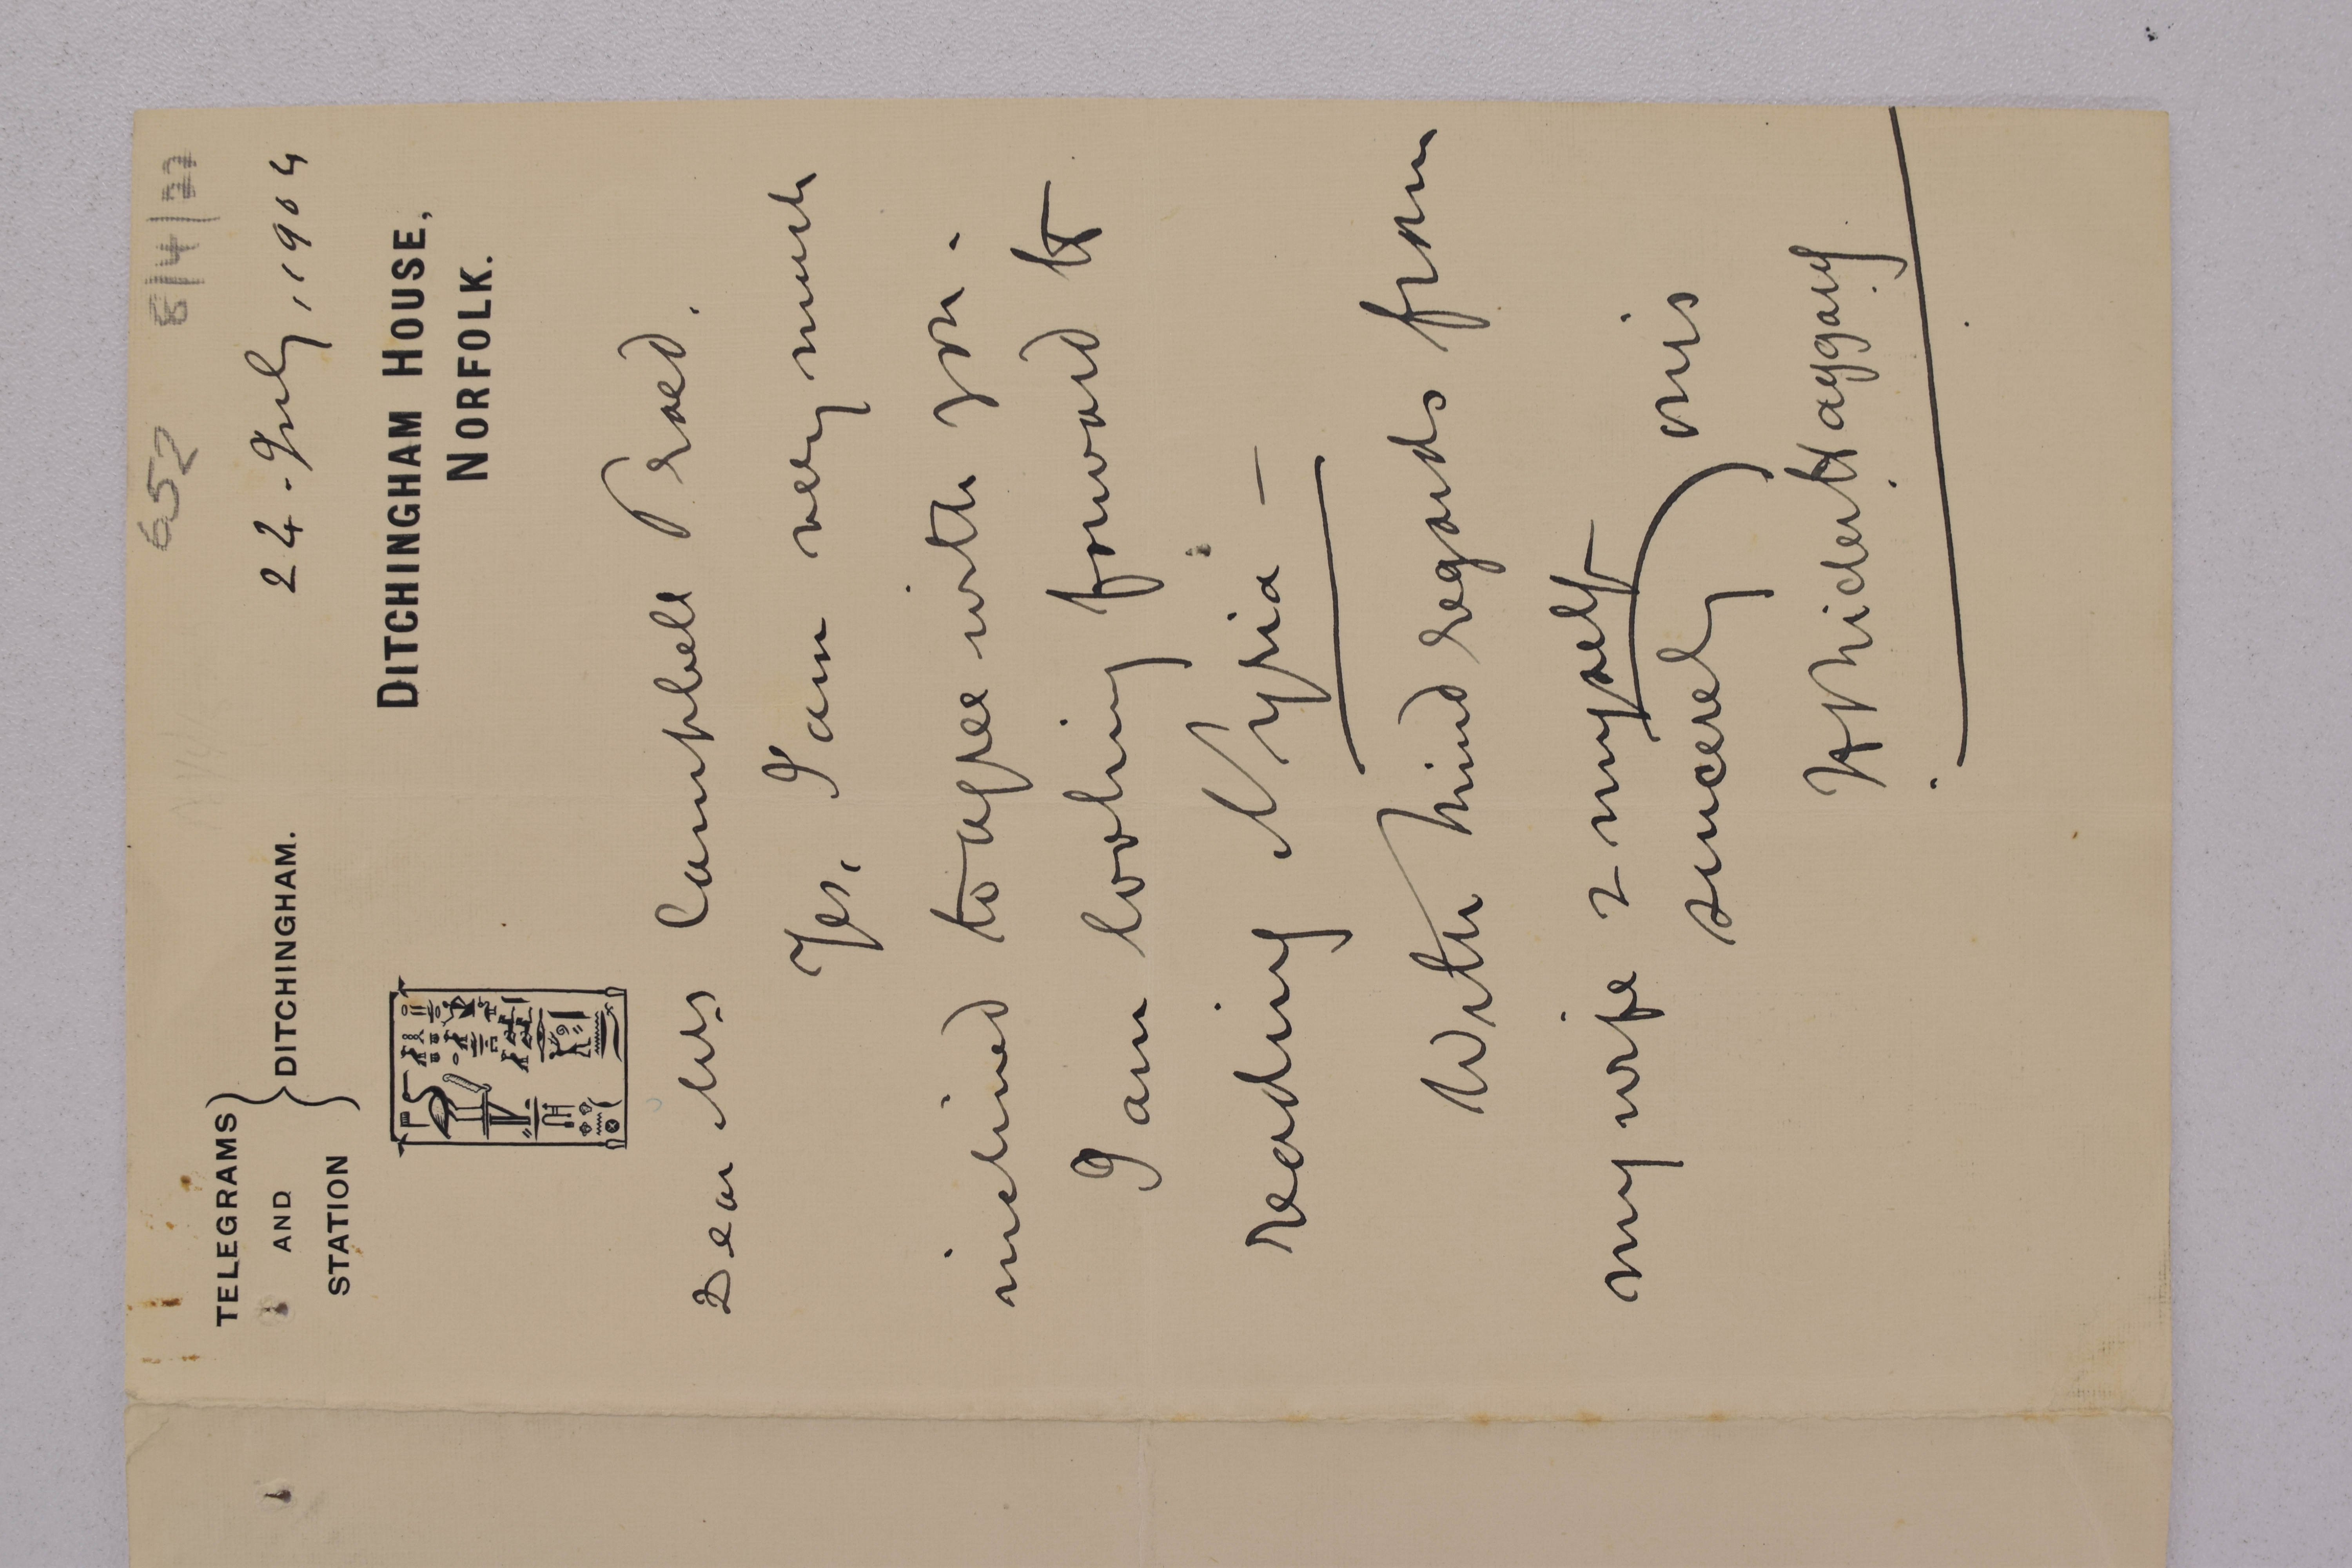 652 8/4/22
22. July, 1904
TELEGRAMS
AND
STATION
DITCHINGHAM.
DITCHINGHAM HOUSE,
NORFOLK.
Dear Mrs Campbell Praed.
Yes, I am very much
inclined to agree with you.
I am looking forward to
reading Nyria –
With kind regards from
my wife & myself
sincerely yrs
H Rider Haggard